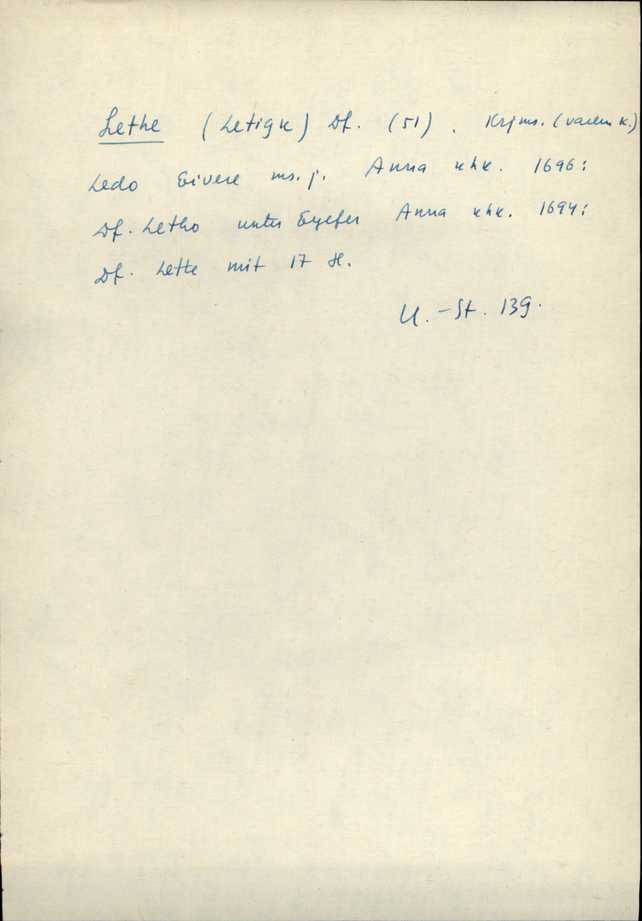 Lethe (Letigk) Df. (51). Krjms. (varem k.)
Ledo Eivere ms. j. Anna khk. 1696:
Df. Letho unter Eyefer Anna khk. 1694:
Df. Lette mit 17 H.
U.-St. 139.